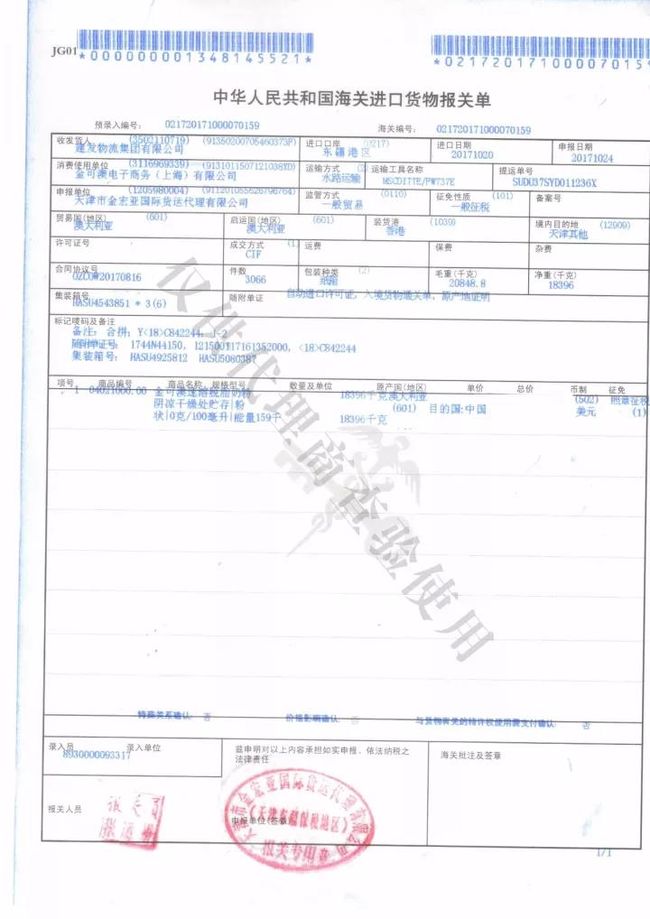 JG01
*000000001348145521*
*021720171000070159
中华人民共和国海关进口货物报关单
预录入编号： 021720171000070159 海关编号： 021720171000070159
收发货人 (3502110719) (91350200705460373P) 进口口岸 (0217) 进口日期 申报日期
建发物流集团有限公司 东疆港区 20171020 20171024
消费使用单位 (3116969339) 运输方式 运输工具名称 提运单号
金可澳电子商务（上海）有限公司 水路运输 SUDU37SYD011236X
申报单位 (1205980004) 监管方式 (0110) 征免性质 (101) 备案号
天津市金宏亚国际货运代理有限公司 一般贸易 一般征税
贸易国(地区) (601) 启运国(地区) (601) 装货港 (1039) 境内目的地 (12909)
澳大利亚 澳大利亚 香港 天津其他
许可证号 成交方式 (1) 运费 保费 杂费
CIF
合同协议号 件数 包装种类 (2) 毛重(千克) 净重(千克)
OZCOW20170816 3066 纸箱 20848.8 18396
集装箱号 随附单证
HASU4543851 * 3(6) 自动进口许可证，入境货物通关单，原产地证明
标记唛码及备注
备注：合拼：Y<18>C842244，
随附单证号： 1744N44150, 121500117161352000, <18>C842244
集装箱号： HASU4925812 HASU5080387
项号 商品编号 商品名称、规格型号 数量及单位 原产国(地区) 单价 总价 币制 征免
1 04021000.00 金可澳速溶脱脂奶粉 18396千克 澳大利亚 (502) 照章征税
阴凉干燥处贮存|粉 (601) 目的国:中国 美元 (1)
状|0克/100毫升|能量159千 18396千克
特殊关系确认：否 价格影响确认：否 与货物有关的特许权使用费支付确认：否
仅供代理商查验使用
录入员 录入单位 兹申明对以上内容承担如实申报、依法纳税之 海关批注及签章
8930000093317 法律责任
报关人员 申报单位(签章)
天津市金宏亚国际货运代理有限公司
(天津东疆保税港区)
报关专用章
1/1